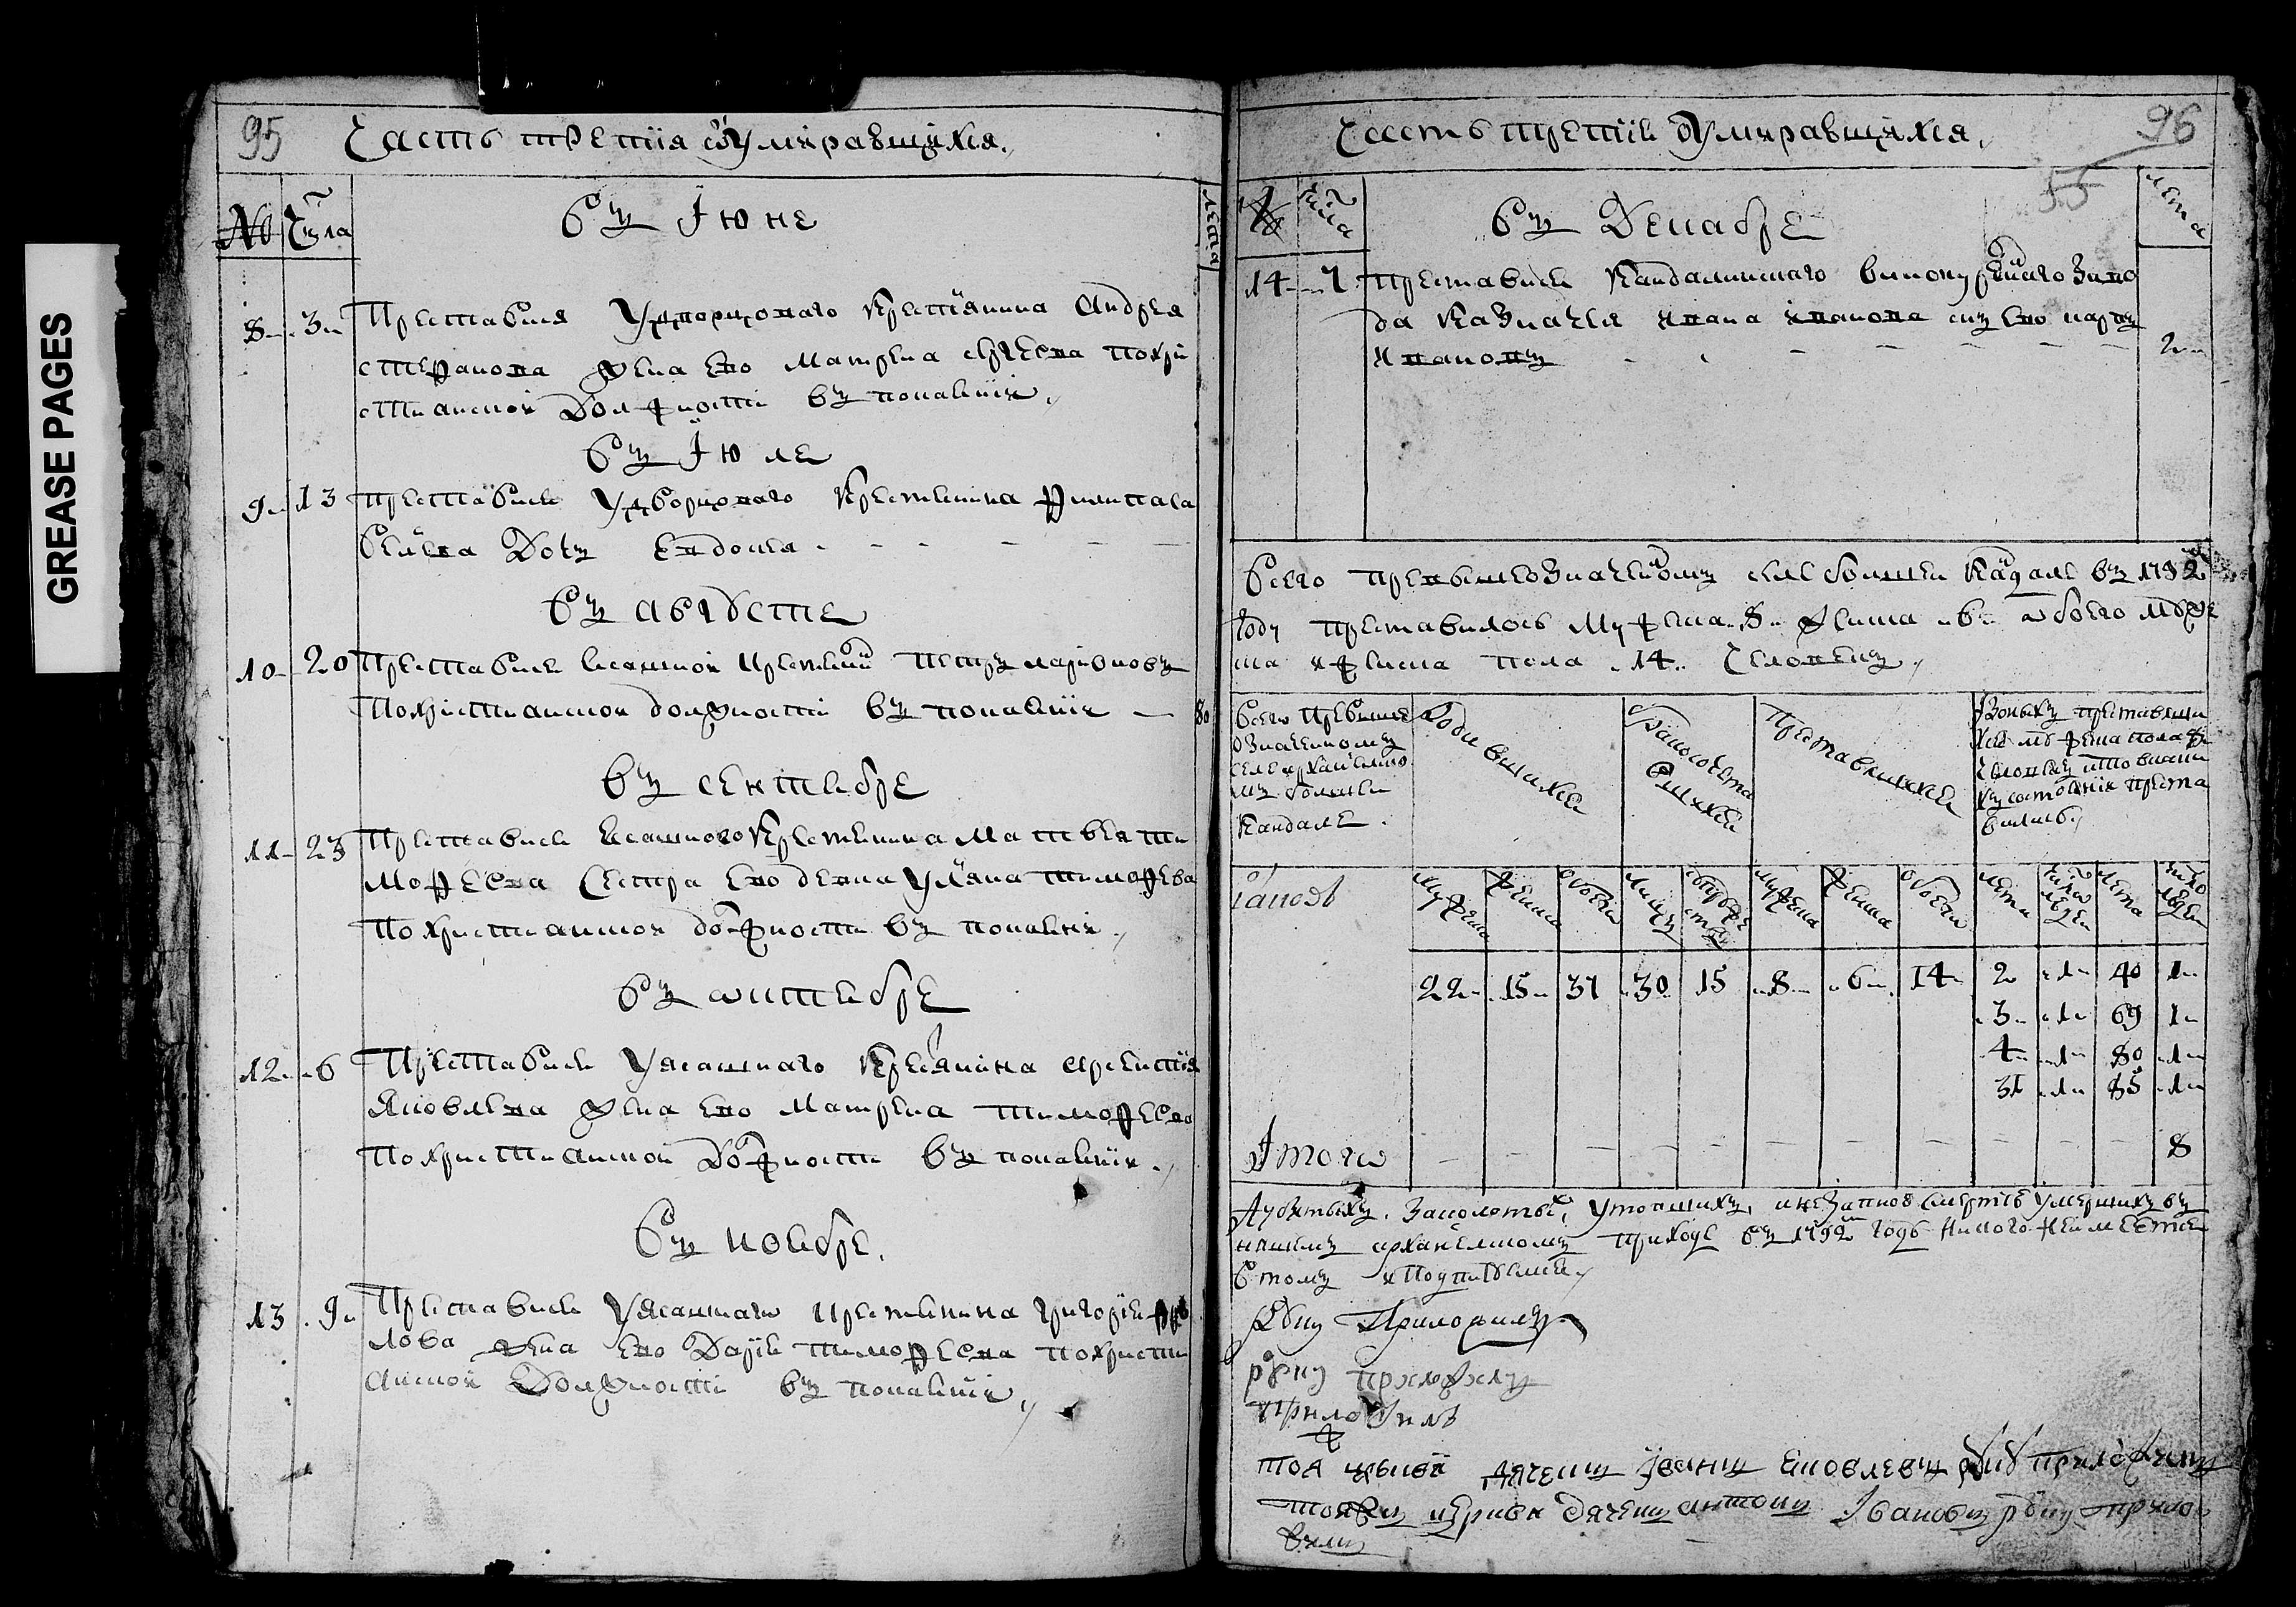 GREASE PAGES
95
Часть третїя ѡ умиравшихся.
№ Числа
Въ Іюне
лета
8 3 Преставися У дворцоваго крестїянина Андрея
стефанова жена ево Матрена покри
стианской должности въ покаянїи
Въ Іюле
9 13 преставися У дворцоваго крестьянина филипа
дочь Евдокея
Въ августе
10 20 Преставися ясашной крестьянинъ Петръ ларїоновъ
Покристианской должности въ покаянїи 80
въ сентябре
11 23 Преставися ясашного крестьянина Матвея ти
мофеева Сестра ево девка Уляна тимофева
По христианской должности въ покаянїи
Въ ѡктябре
12 6 Преставися У ясашнаго
Яковлева жена ево Матрена тимофеева
По христианской должности въ покаянїи
Въ ноябре.
13 9 Преставися У ясашнаго крестьянина григорїя фро
лова жена ево Дарїя тимофеева покристи
анской Должности въ покаянїи
96
55
Часть третїя ѡ умиравшихся,
№ числа
Въ Декабре
лета
14 7 преставися Кандалинского винокуреннаго заво
да казначея ивана иванова сынъ ево карпъ
ивановъ 2
Всего превышеозначенному селе болшей Кандале въ 1792м
году преставилось Мужеска 8 женска 6 ѡбоего мужє
ска и женска пола 14 человекъ
Всего превыше
означенному
селе архангелско
му болшей
Кандале
Родившихся
Бракосочета
вшихся
Преставившихся
преставши
хся мужеска пола 8
человекъ
преста
вились
мужеска женска обоего мужеска женска обоего лета число людей лета число людей
22 15 37 30 15 8 6 14 2 1 40 1
3 1 69 1
4 1 80 1
31 1 85 1
Итого 8
Заколотыхъ, утопшихъ, и незапною смертью умершихъ въ
нашемъ архангелскомъ приходе въ 1792м году никого неимеетсе
В томъ и подписуемся
Руку Приложилъ
руку приложилъ
приложилъ
тоя церкви дячекъ Иванъ Яковлевъ руку приложилъ
тояжъ церкви дячекъ антонъ Ивановъ руку прило
жилъ